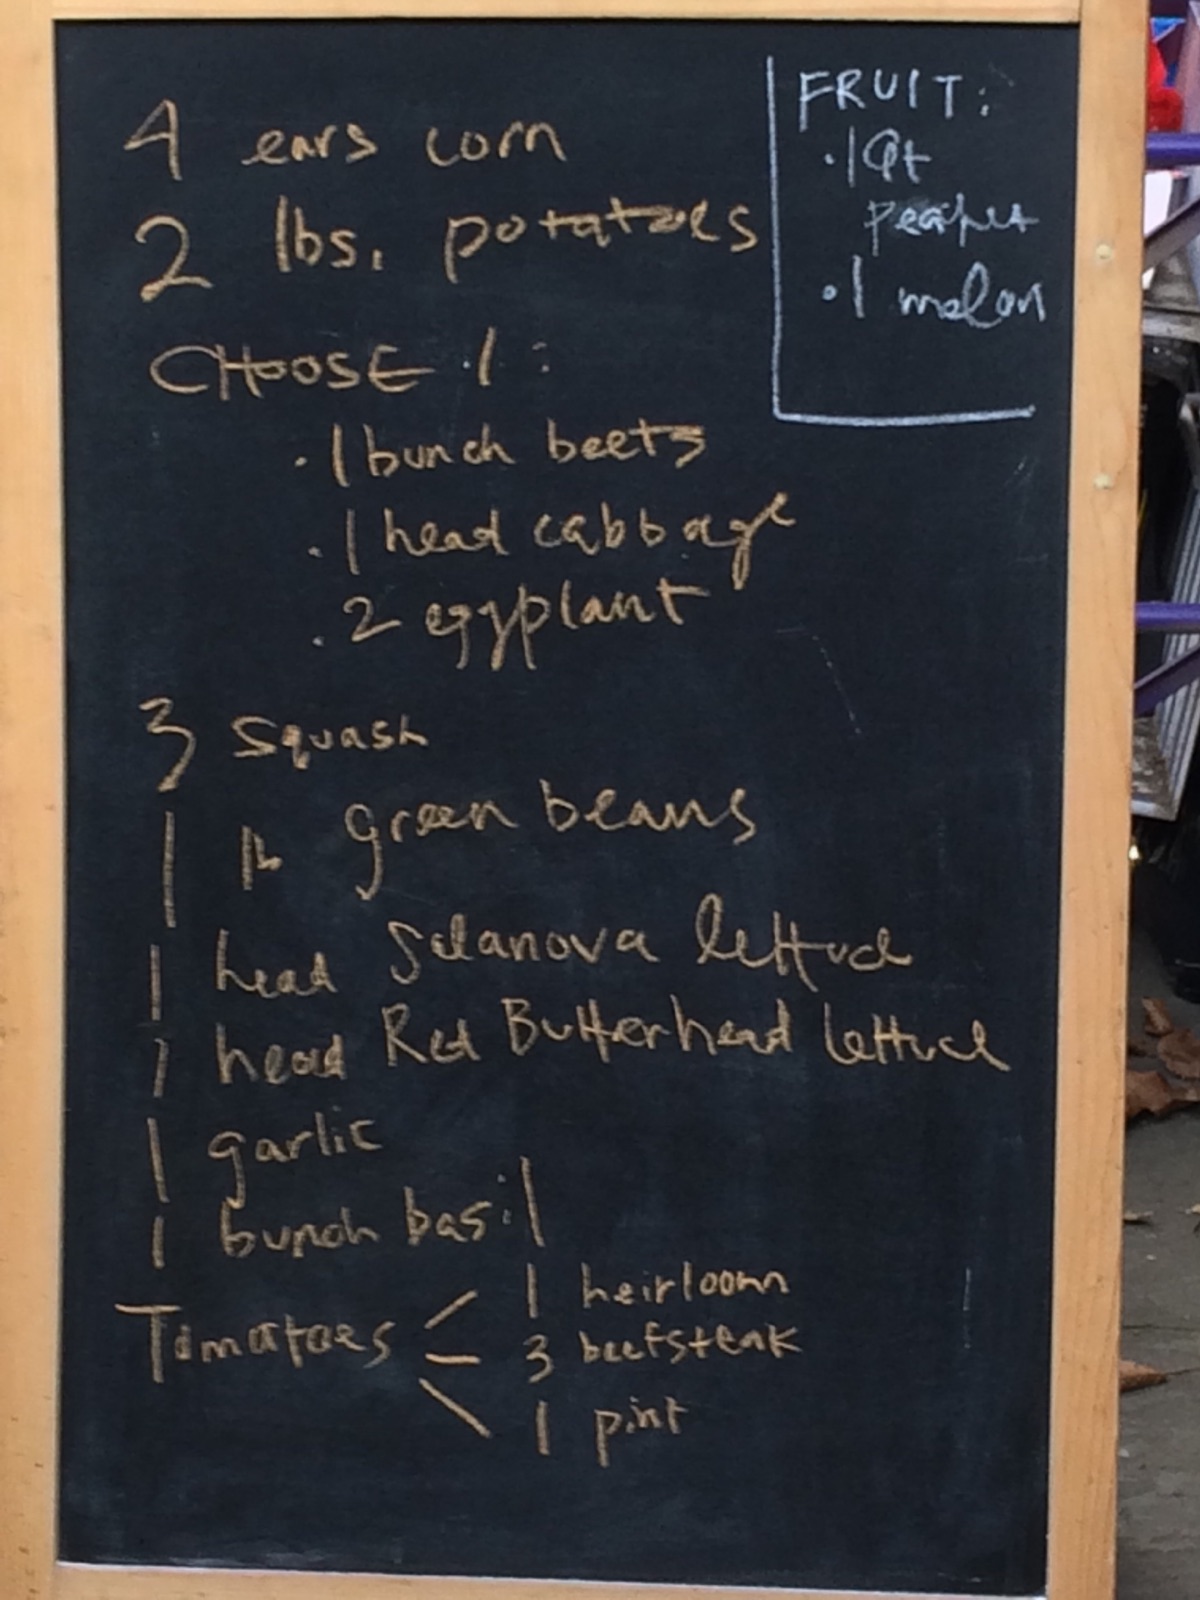 4 ears corn
2 lbs. potatoes
CHOOSE 1:
· 1 bunch beets
· 1 head cabbage
· 2 eggplant
3 squash
1 lb green beans
1 head Salanova lettuce
1 head Red Butterhead lettuce
1 garlic
1 bunch basil
Tomatoes
1 heirloom
3 beefsteak
1 pint
FRUIT:
· 1 Qt
peaches
· 1 melon